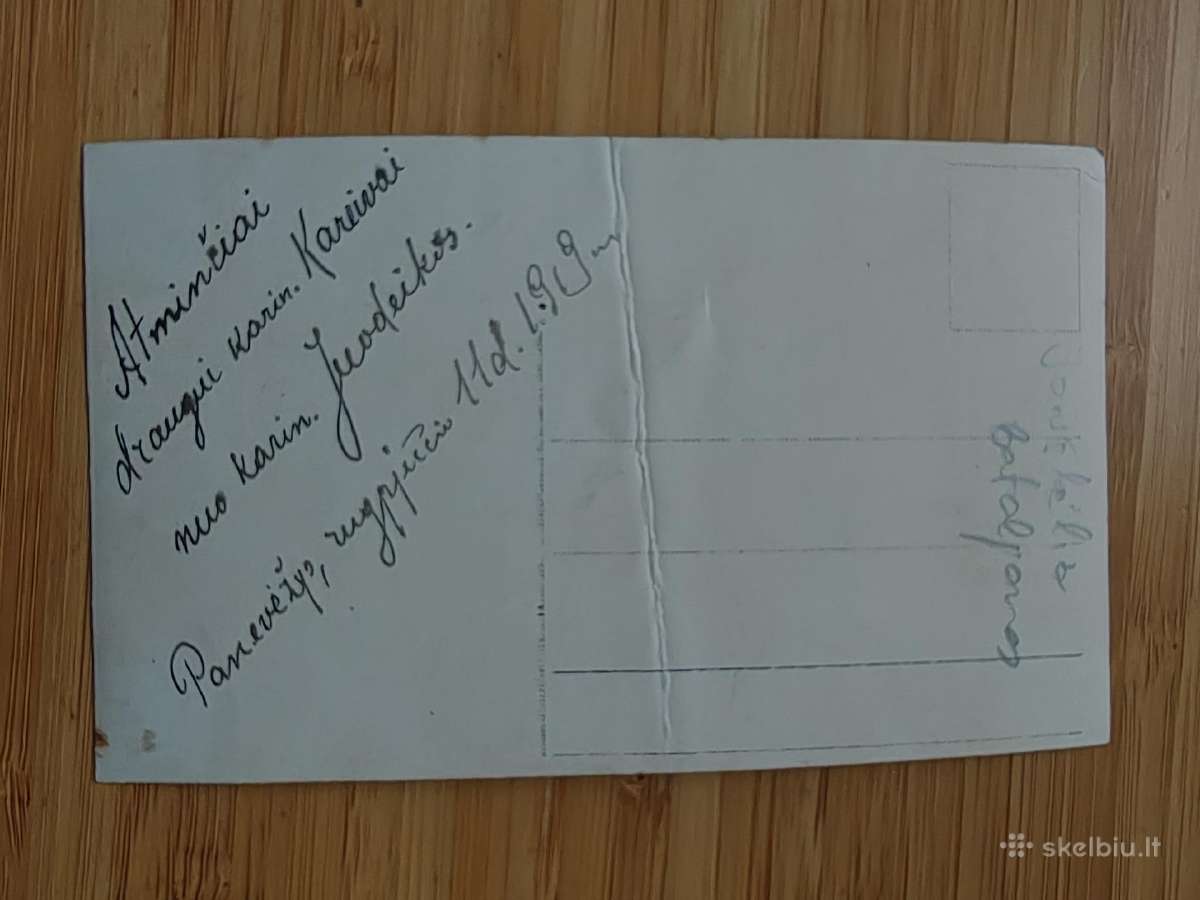 Atminčiai
draugui karin. Kareivai
nuo karin. Juodeikos.
Panevėžys, rugpjūčio 11 d. 1919 m
Joniškėlio
Bataljonas
skelbiu.lt